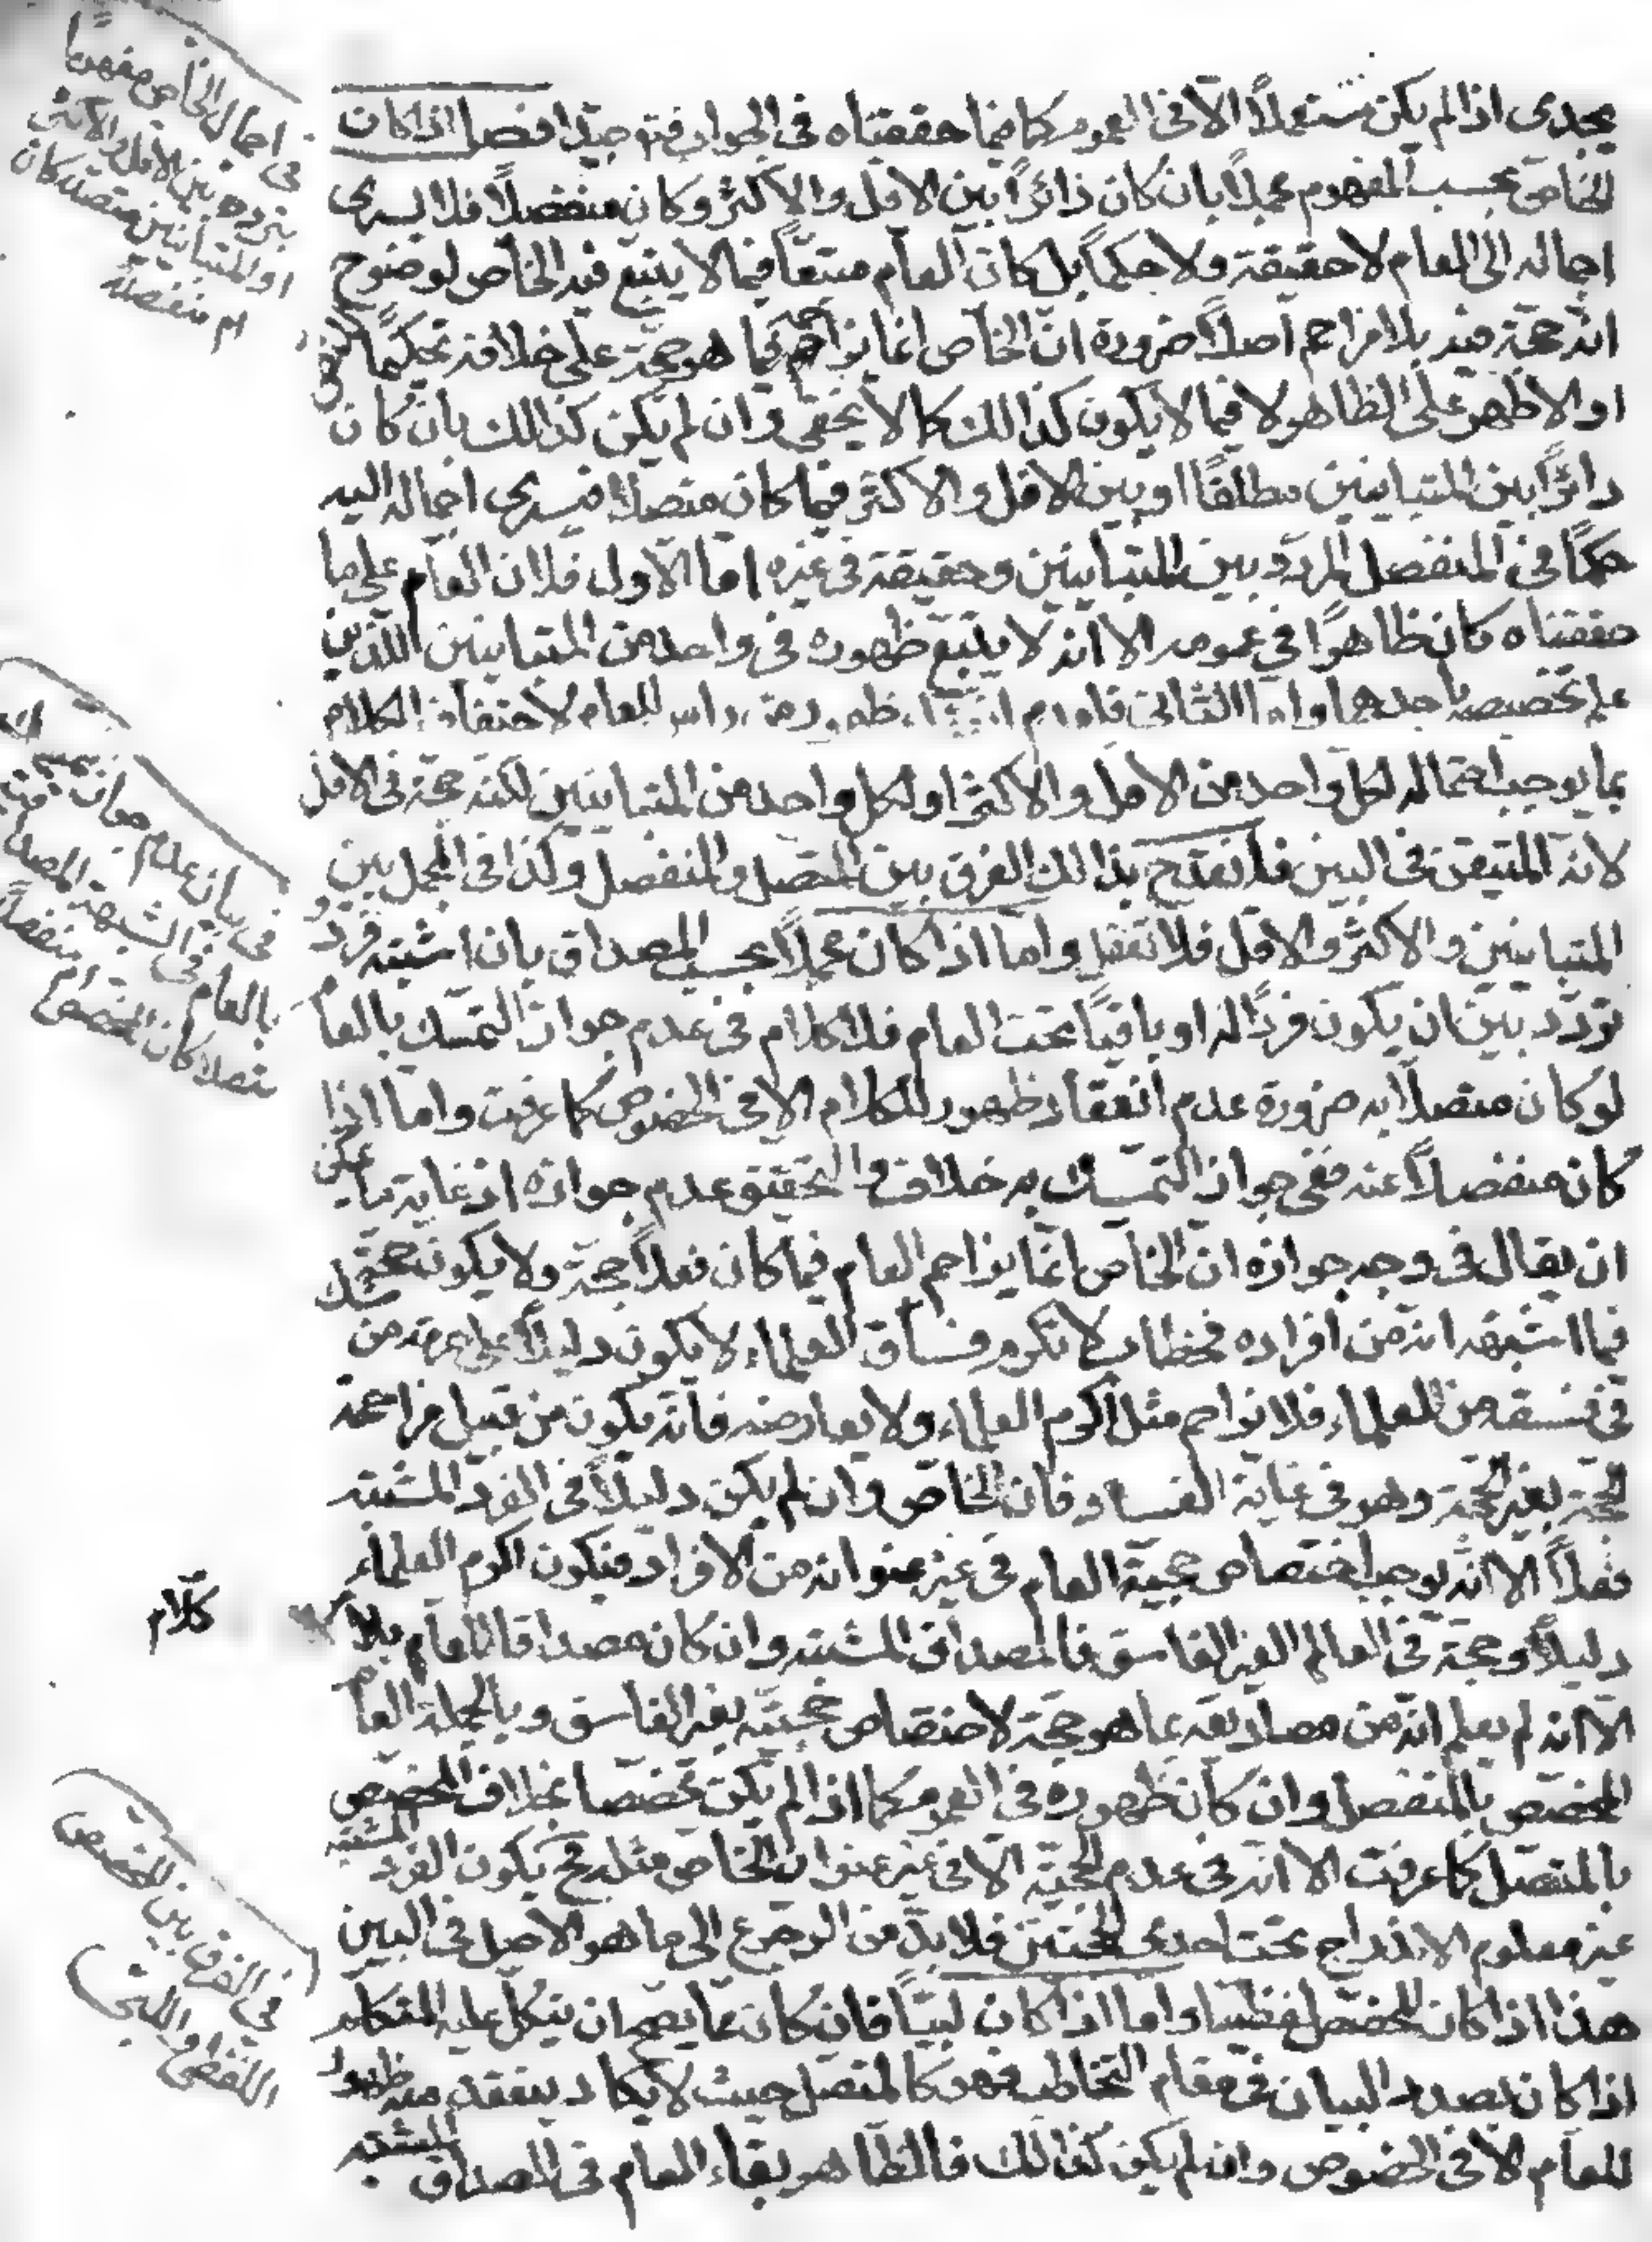 يجدى اذا لم يكن مستعملاً الا فى العموم كما فيما حققناه فى الجواب فتوجيد افصل اذا كان
الخاص بحسب المفهوم مجملاً بان كان دائراً بين الاقل والاكثر وكان منفصلاً فلا يسرى
اجماله الى العام لا حقيقة ولا حكماً بل كان العام متبعاً فيما لا يتبع فيه الخاص لوضوح
انه حجة فيه بلا مزاحم اصلاً ضرورة ان الخاص انما يزاحمه فيما هو حجة على خلافه تحكيماً للنص
او الاظهر على الظاهر لا فيما لا يكون كذالك كما لا يخفى وان لم يكن كذالك بان كان
دائراً بين المتباينين مطلقاً او بين الاقل والاكثر فيما كان متصلاً فيسرى اجماله اليه
حكماً فى المنفصل المردد بين المتباينين وحقيقة فى غيره اما الاول فلان العام على ما
حققناه كان ظاهراً فى عمومه الا انه لا يتبع ظهوره فى واحد من المتباينين اللذين
علم تخصيصه باحدهما واما الثانى فلعدم انعقاد ظهور من راس للعام لاحتفاف الكلام
بما يوجب احتماله لكل واحد من الاقل والاكثر او لكل واحد من المتباينين لكنه حجة فى الاقل
لانه المتيقن فى البين فانقدح بذالك الفرق بين المتصل والمنفصل وكذا فى المجمل بين
المتباينين والاكثر والاقل فلا تغفل واما اذا كان مجملاً بحسب المصداق بان اشتبه فرد و
تردد بين ان يكون فرداً له او باقياً تحت العام فلا كلام فى عدم جواز التمسك بالعام
لو كان متصلاً به ضرورة عدم انعقاد ظهور للكلام الا فى الخصوص كما عرفت واما اذا
كان منفصلاً عنه ففى جواز التمسك به خلاف والتحقيق عدم جوازه اذ غاية ما يمكن
ان يقال فى وجه جوازه ان الخاص انما يزاحم العام فيما كان فعلاً حجة ولا يكون حجة
فيما اشتبه انه من افراده فخطاب لا تكرم فساق العلماء لا يكون دليلاً على حرمته من شك
فى فسقه من العلماء فلا يزاحم مثل اكرم العلماء ولا يعارضه فانه يكون من قبيل مزاحمة
الحجة بغير الحجة وهو فى غاية الفساد فان الخاص وان لم يكن دليلاً فى الفرد المشتبه
فعلاً الا انه يوجب اختصاص حجية العام فى غير عنوانه من الافراد فيكون اكرم العلماء
دليلاً وحجة فى العالم الغير الفاسق فالمصداق المشتبه وان كان مصداقا للعام بلا
كلام
الا انه لم يعلم انه من مصاديقه بما هو حجة لاختصاص حجيته بغير الفاسق وبالجملة العام
المخصص بالمنفصل وان كان ظهوره فى العموم كما اذا لم يكن مخصصا بخلاف المخصص
بالمتصل كما عرفت الا انه فى عدم الحجية الا فى غير عنوان الخاص مثله فح يكون الفرد المشتبه
غير معلوم الاندراج تحت احدى الحجتين فلا بد من الرجوع الى ما هو الاصل فى البين
هذا اذا كان المخصص لفظيا واما اذا كان لبيّاً فان كان مما يصح ان يتكل عليه المتكلم
اذا كان بصدد البيان فى مقام التخاطب فهو كالمتصل حيث لا يكاد ينعقد معه ظهور
للعام الا فى الخصوص وان لم يكن كذالك فالظاهر بقاء العام فى المصداق المشتبه
فى اجمال الخاص مفهوما
بتردده بين الاقل والاكثر
او المتباينين متصلة كان
ام منفصلة
فى بيان عدم جواز التمسك
بالعام فى الشبهة المصداقية
متصلا كان المخصص ام منفصلاً
فى الفرق بين المخصص
اللفظى واللبى